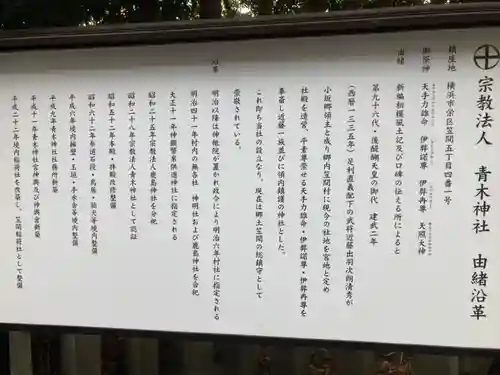 宗教法人 青木神社 由緒沿革
鎮座地 横浜市栄区笠間五丁目四番一号
御祭神 天手力雄命 伊弉諾尊 伊弉冉尊 天照大神
由緒 新編相模風土記及び口碑の伝える所によると
第九十六代・後醍醐天皇の御代 建武二年
(西暦一三三五年)足利直義配下の武将近藤出羽次郎清秀が
小坂郷領主と成り郷内笠間村に現今の社地を宮地と定め
社殿を造営、平素尊崇せる天手力雄命・伊弉諾尊・伊弉冉尊を
奉斎し近藤一族並びに領内鎮護の神社とした。
これ即ち当社の設立なり。現在は郷土笠間の総鎮守として
崇敬されている。
沿革 明治以降は神祇院が置かれ政令により明治六年村社に指定される
明治四十一年村内の無各社 神明社および鹿島神社を合祀
大正十一年神饌幣帛供進神社に指定される
昭和二十五年宗教法人鹿島神社を分祀
昭和二十八年宗教法人青木神社として認証
昭和五十二年本殿・拝殿改修整備
昭和六十二年参道石段・鳥居・狛犬等境内整備
平成六年境内擁壁・玉垣・手水舎等境内整備
平成九年青木神社社務所新築
平成十一年青木神社宮神輿及び神輿舎新築
平成二十二年境内稲荷社を改築し、笠間稲荷社として整備